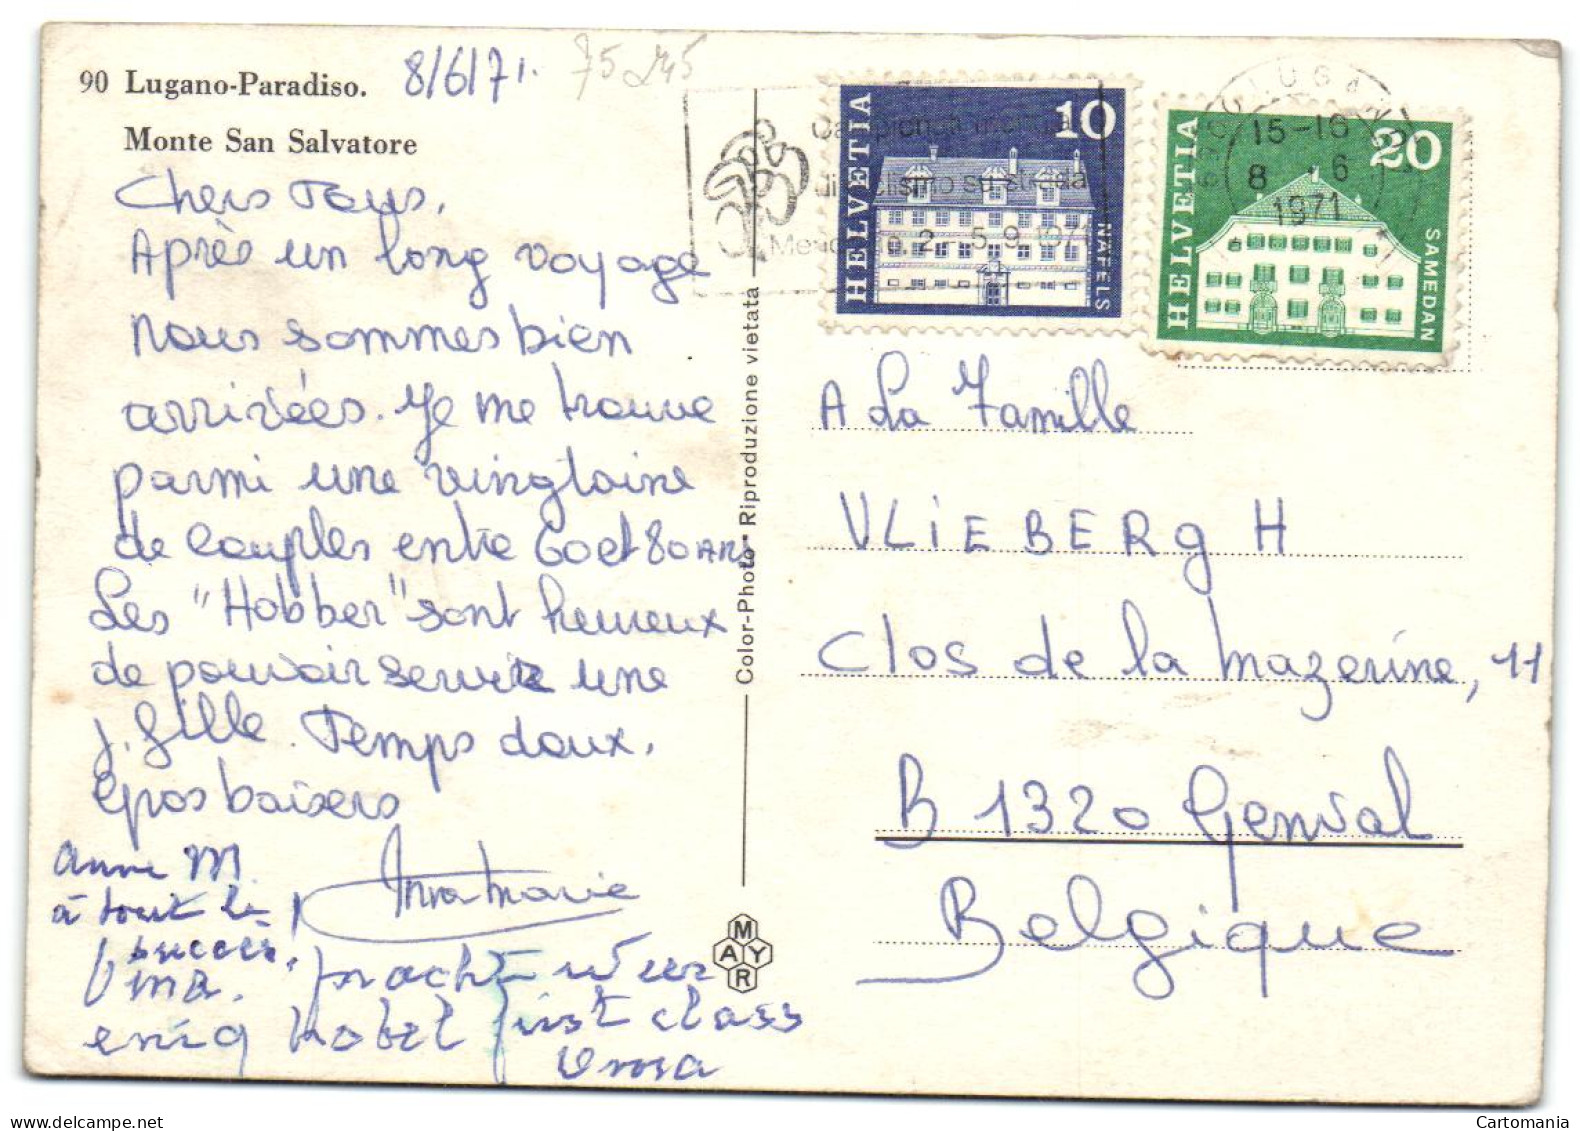 90 Lugano-Paradiso.
Monte San Salvatore
8/6/71.
75 245
Chers Tous,
Après un long voyage
nous sommes bien
arrivées. Je me trouve
parmi une vingtaine
de couples entre 60 et 80 ANS
Les "Hobber" sont heureux
de pouvoir servir une
j. fille. Temps doux.
Gros baisers
Anne Marie
Anne M.
à tout le
succès,
pracht weer
enig hotel first class
Oma
Color-Photo • Riproduzione vietata
MAYR
HELVETIA
10
NÄFELS
HELVETIA
20
SAMEDAN
LUGANO
15-16
8 - 6
1971
A La Famille
VLIEBERgH
Clos de la mazerine, 11
B 1320 Genval
Belgique
Cartomania